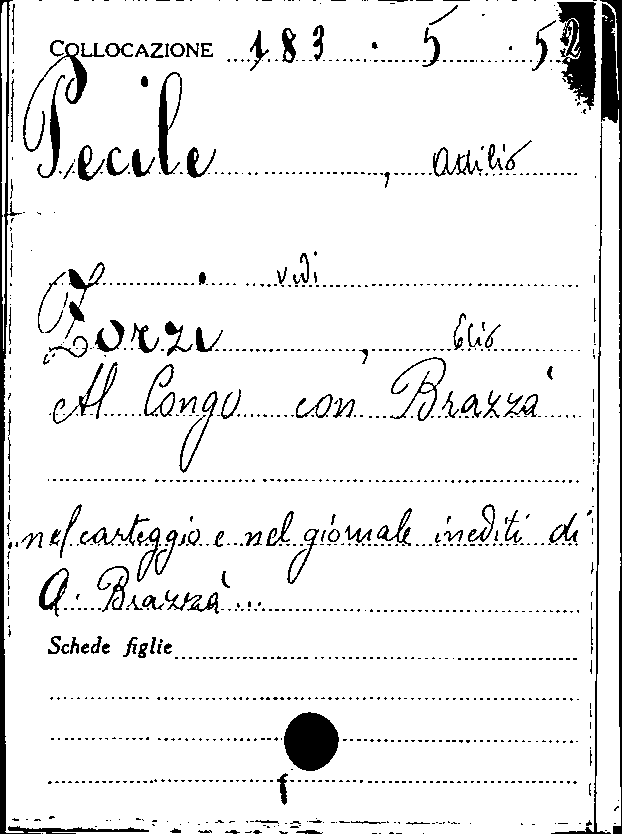 COLLOCAZIONE 183 . 5 . 52
Pecile, Attilio
vedi
Zorzi, Elio
Al Congo con Brazzà
...nel carteggio e nel giornale inediti di
A. Brazzà...
Schede figlie